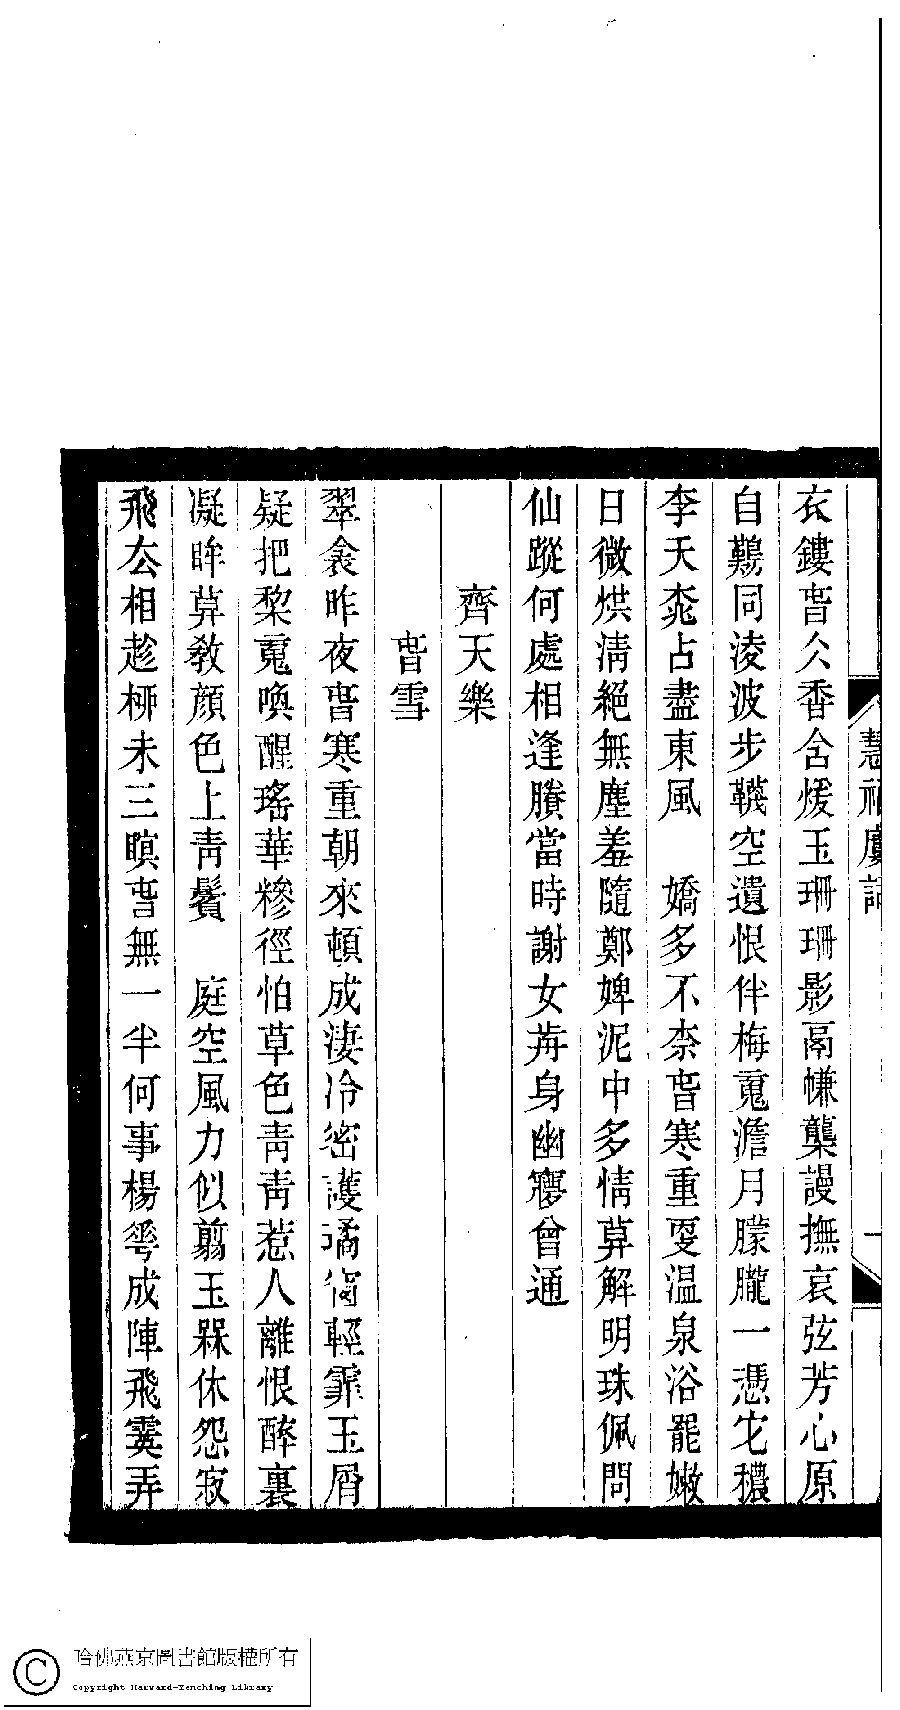 慧福廎詞
一
衣鏤旾久香含煖玉珊珊影鬲㡘櫳謾撫哀弦芳心原
自難同淩波步韈空遺恨伴梅䰟澹月朦朧一憑宅穠
李夭桃占盡東風　嬌多不柰旾寒重㪅温泉浴罷嫩
日微烘淸絕無塵羞隨鄭婢泥中多情莫解明珠佩問
仙蹤何處相逢賸當時謝女歬身幽㝱曾通
齊天樂
旾雪
翠衾昨夜旾寒重朝來頓成淒冷密護璚窗輕霏玉屑
疑把棃䰟喚醒瑤華糝徑怕草色靑靑惹人離恨醉裏
凝眸莫敎顏色上靑鬢　庭空風力似翦玉槑休怨寂
飛厺相趁桺未三瞑旾無一半何事楊蕐成陣飛霙弄
哈佛燕京圖書館版權所有
Copyright Harvard-Yenching Library